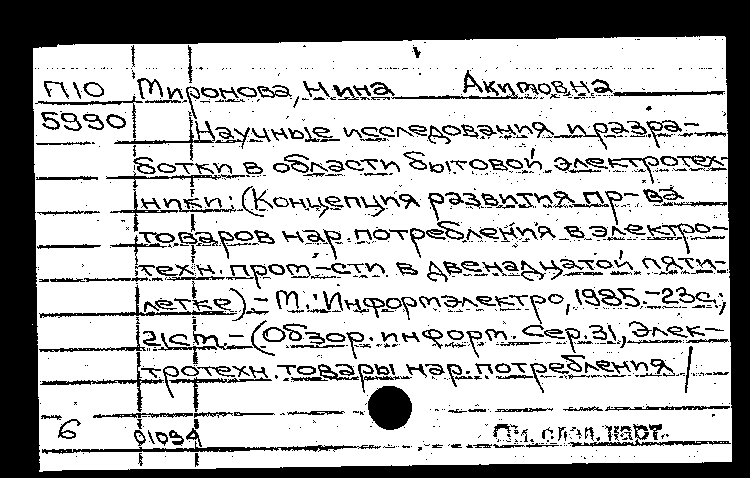 П10 Миронова, Нина Акимовна
5990 Научные исследования и разра-
ботки в области бытовой электротех-
ники: (Концепция развития пр-ва
товаров нар. потребления в электро-
техн. пром-сти в двенадцатой пяти-
летке). - М.: Информэлектро, 1985. - 23с.;
21см. - (Обзор. информ. Сер. 31, Элек-
тротехн. товары нар. потребления /
6 01094 См. след. карт.